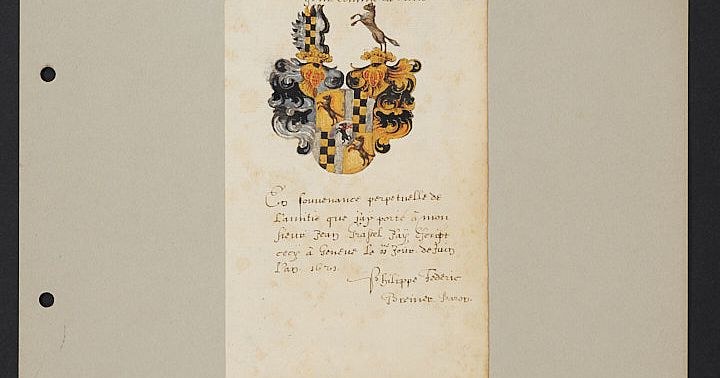 En souvenance perpetuelle de
l'amitie que j'ay porté à mon
sieur Jean J'ay Escript
cecy à Geneve le Jour de Juin
l'an 1621
Philippe Federic
Breiner Baron.